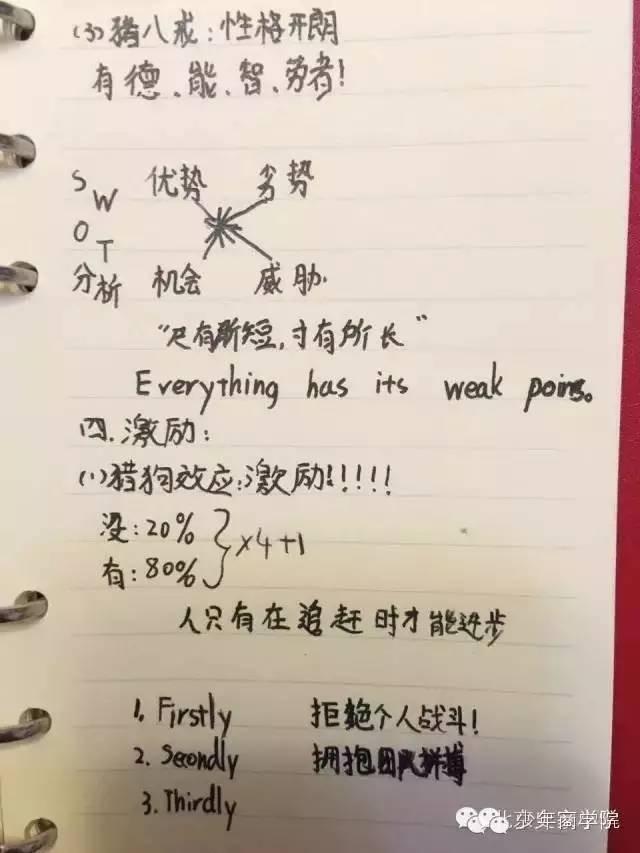 (3)猪八戒：性格开朗
有德、能、智、劳者！
S W 优势 劣势
O T
分析 机会 威胁.
“尺有所短，寸有所长”
Everything has its weak poins。
四.激励：
(1)猎狗效应：激励！！！！！
没：20% } ×4+1
有：80%
人只有在追赶时才能进步
1. Firstly 拒绝个人战斗！
2. Secondly 拥抱团队拼搏
3. Thirdly
北少年商学院